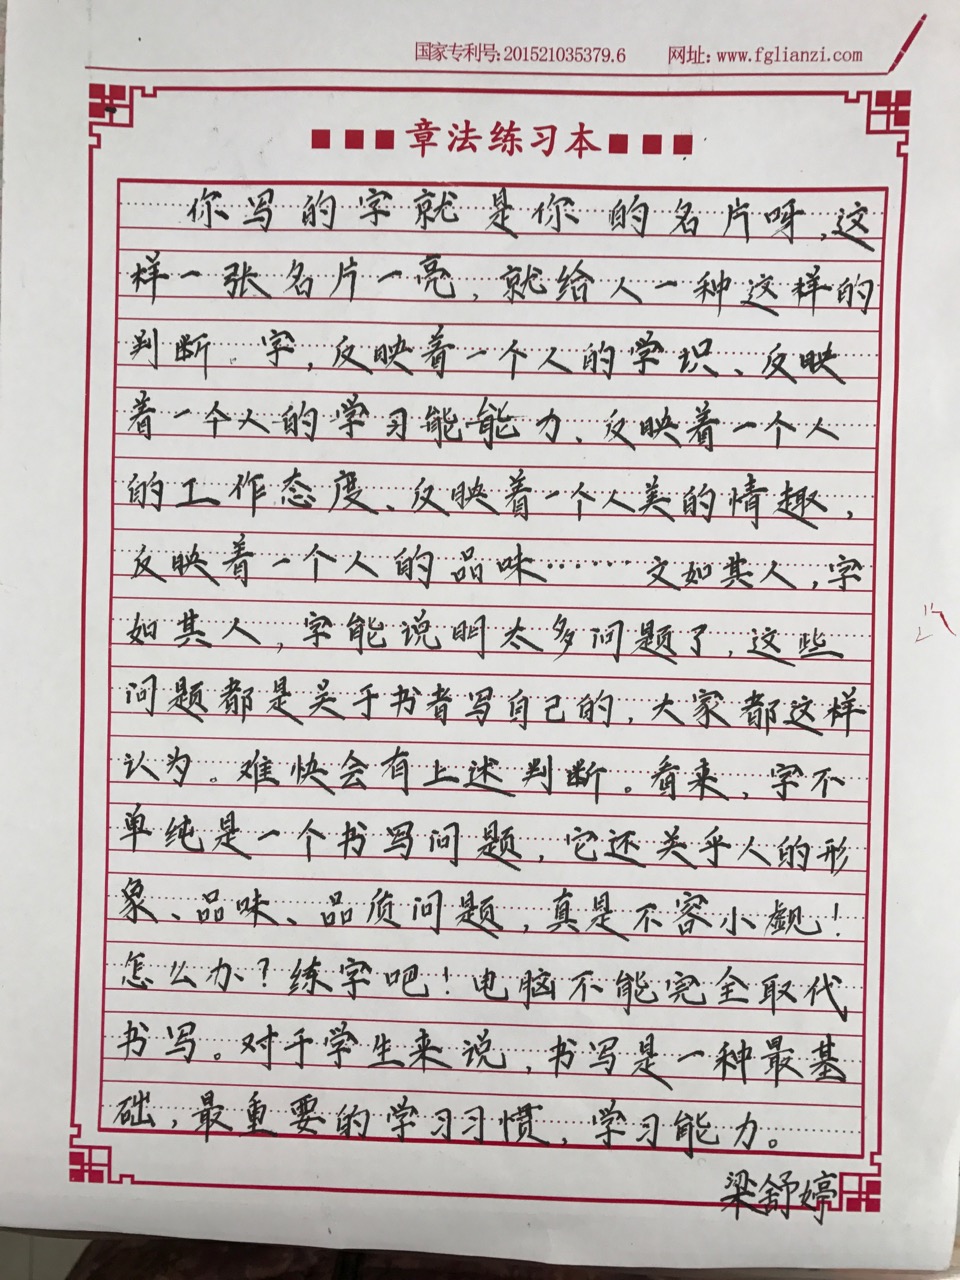 国家专利号:201521035379.6 网址: www.fglianzi.com
章法练习本
你写的字就是你的名片呀,这
样一张名片一亮,就给人一种这样的
判断。字,反映着一个人的学识、反映
着一个人的学习能能力、反映着一个人
的工作态度、反映着一个人美的情趣,
反映着一个人的品味……文如其人,字
如其人,字能说明太多问题了,这些
问题都是关于书者写自己的,大家都这样
认为。难怏会有上述判断。看来,字不
单纯是一个书写问题,它还关乎人的形
象、品味、品质问题,真是不容小觑!
怎么办?练字吧!电脑不能完全取代
书写。对于学生来说,书写是一种最基
础,最重要的学习习惯,学习能力。
梁舒婷